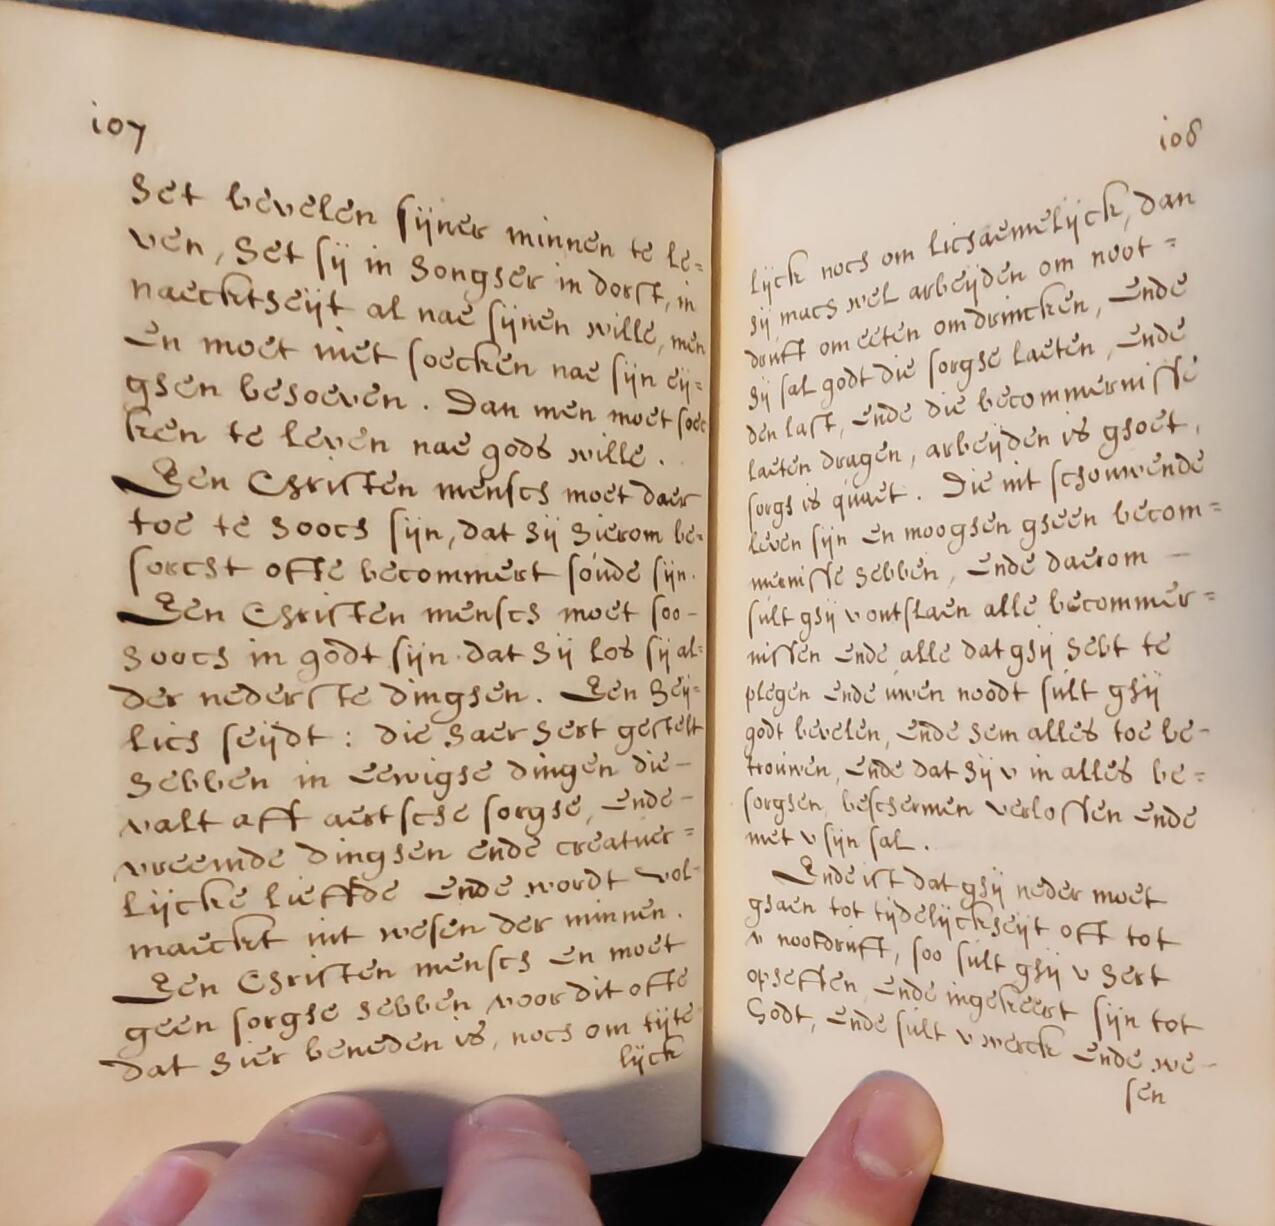 107
het bevelen sijner minnen te le=
ven, het sij in hongher in dorst, in
naecktheijt al nae sijnen wille, men
en moet niet soecken nae sijn eij=
ghen behoeven. Dan men moet soec
ken te leven nae gods wille.
Een Christen mensch moet daer
toe te hooch sijn, dat hij hierom be=
sorcht offe becommert soude sijn.
Een Christen mensch moet soo-
hooch in godt sijn dat hij los sij al=
der nederste dinghen. Een heij=
lich seijdt: die haer hert gestelt
hebben in eewighe dingen die-
valt aff aertsche sorghe, ende-
vreemde dinghen ende creatuer=
lijcke lieffde ende wordt vol-
maeckt int wesen der minnen.
Een Christen mensch en moet
geen sorghe hebben voor dit offe
dat hier beneden is, noch om tijte
lijck
108
lijck noch om lichaemelijck, dan
hij mach wel arbeijden om noot=
druft om eeten om drincken, ende
hij sal godt die sorghe laeten, ende
den last, ende die becommernisse
laeten dragen, arbeijden is ghoet,
sorgh is quaet. Die int schouwende
leven sijn en mooghen gheen becom=
mernisse hebben, ende daerom —
sult ghij v ontslaen alle becommer=
nissen ende alle dat ghij hebt te
plegen ende uwen noodt sult ghij
godt bevelen, ende hem alles toe be-
trouwen, ende dat hij v in alles be=
sorghen, beschermen verlossen ende
met v sijn sal.
Ende ist dat ghij neder moet
ghaen tot tijdelijckheijt oft tot
v nootdruft, soo sult ghij v hert
opheffen ende ingekeert sijn tot
Godt, ende sult v werck ende we-
sen